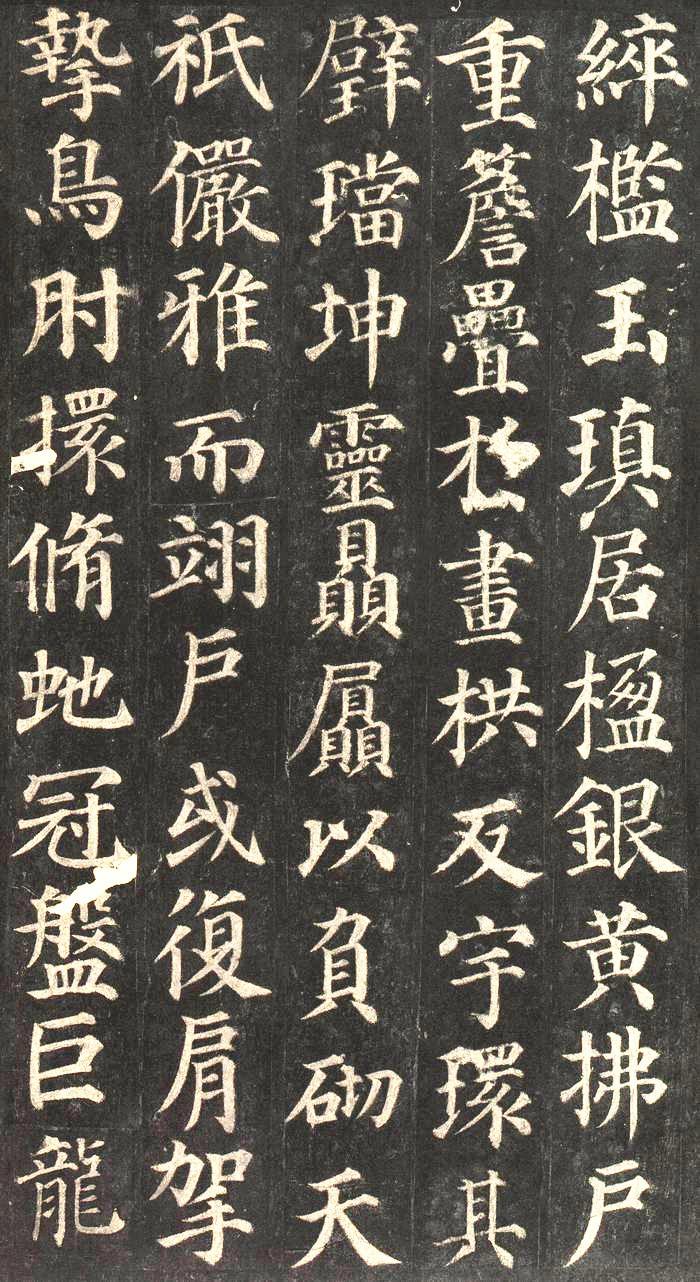 綷檻玉瑱居楹銀黃拂户
重簷疊於畫栱反宇環其
璧璫坤靈贔屭以負砌天
祇儼雅而翊户或復肩挐
摯鳥肘擐脩虵冠盤巨龍